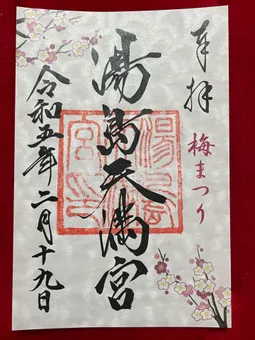 奉拝
梅まつり
湯島天満宮
令和五年二月十九日